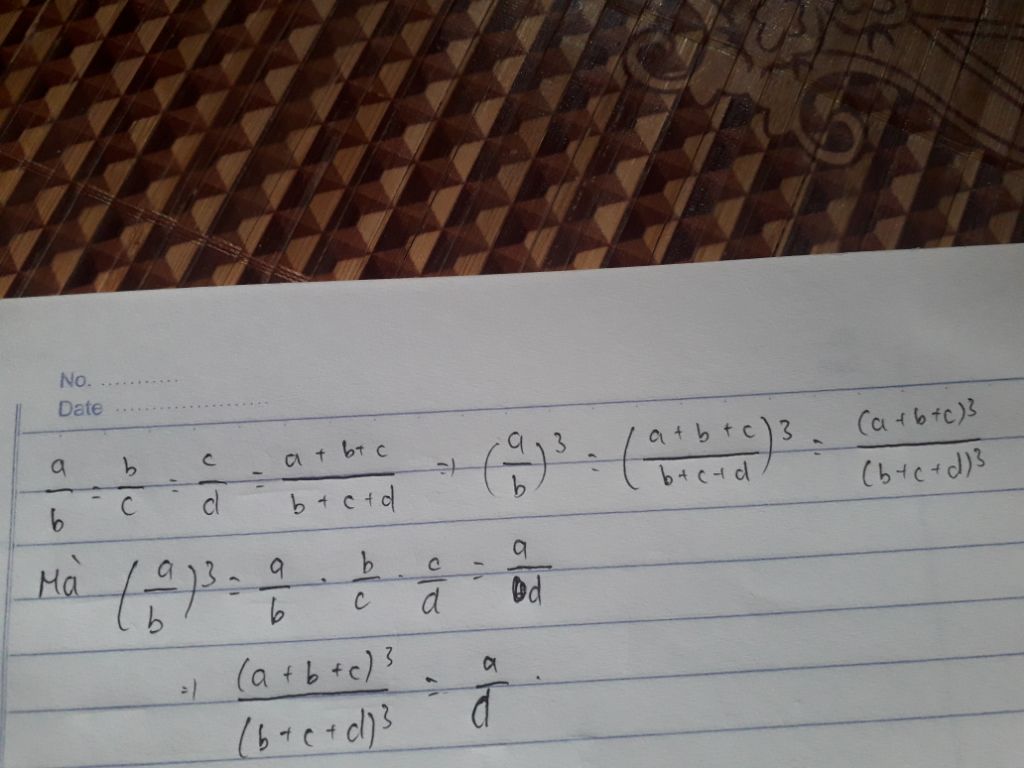 No. ...........
Date ......................
a/b = b/c = c/d = (a + b + c)/(b + c + d) => (a/b)^3 = ((a + b + c)/(b + c + d))^3 = (a + b + c)^3/(b + c + d)^3
Mà (a/b)^3 = a/b . b/c . c/d = a/d
=> (a + b + c)^3/(b + c + d)^3 = a/d .